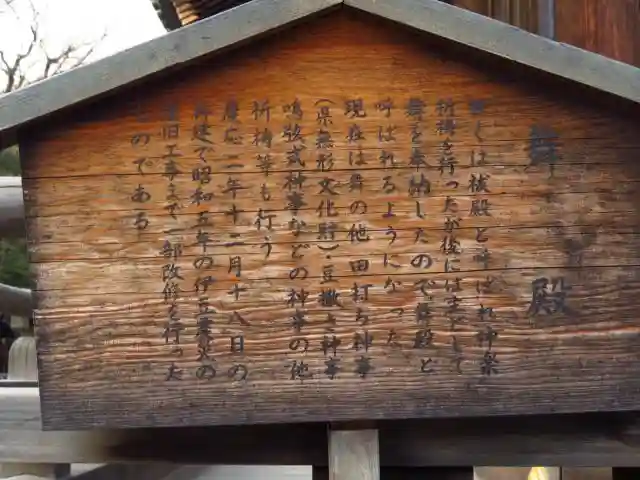 舞殿
古くは祓殿と呼ばれ神楽
祈祷を行ったが後には主として
舞を奉納したので舞殿と
呼ばれるようになった
現在は舞の他田打ち神事
(県無形文化財)・豆撒き神事
鳴弦式神事などの神事の他
祈祷等も行う
慶応二年十二月十八日の
再建で昭和五年の伊豆震災の
復旧工事まで一部改修を行った
ものである